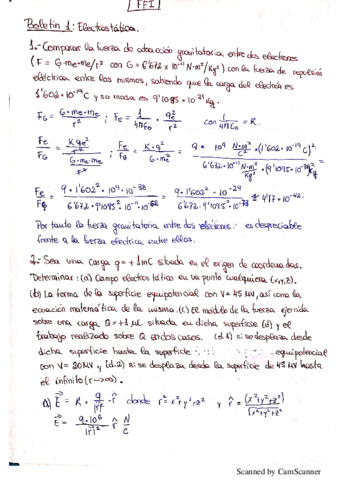 FFI
Boletín 1: Electrostática.
1.- Comparar la fuerza de atracción gravitatoria entre dos electrones
(F = G·me·me/r² con G = 6'672 x 10⁻¹¹ N·m²/Kg²) con la fuerza de repulsión
eléctrica entre los mismos, sabiendo que la carga del electrón es
1'602·10⁻¹⁹C y su masa es 9'1095·10⁻³¹Kg.
F_G = G·me·me / r² ; Fe = 1/4πε₀ · qe²/r² con 1/4πε₀ = K.
Fe/F_G = K qe²/r² / G·me·me/r² ; Fe/F_G = K·q²/G·m² = 9·10⁹ N·m²/C² ·(1'602·10⁻¹⁹C)² / 6'672·10⁻¹¹ N·m²/Kg² ·(9'1095·10⁻³¹Kg)²
Por tanto la fuerza gravitatoria entre dos electrones es despreciable
frente a la fuerza eléctrica entre ellos.
2.- Sea una carga q = +1mC situada en el origen de coordenadas.
Determinar: (a) Campo electrostático en un punto cualquiera (x,y,z).
(b) La forma de la superficie equipotencial con V = 45 MV, así como la
ecuación matemática de la misma. (c) El módulo de la fuerza ejercida
sobre una carga Q = +1 μC situada en dicha superficie (d) y el
trabajo realizado sobre Q en dos casos. (d.1) si se desplaza desde
dicha superficie hasta la superficie equipotencial
con V = 20MV y (d.2) si se desplaza desde la superficie de 45 MV hasta
el infinito (r→∞).
a) E = K · q/|r|² · r̂ donde r² = x²+y²+z² y r̂ =
E = 9·10⁶/|r|² r̂ N/C
Scanned by CamScanner